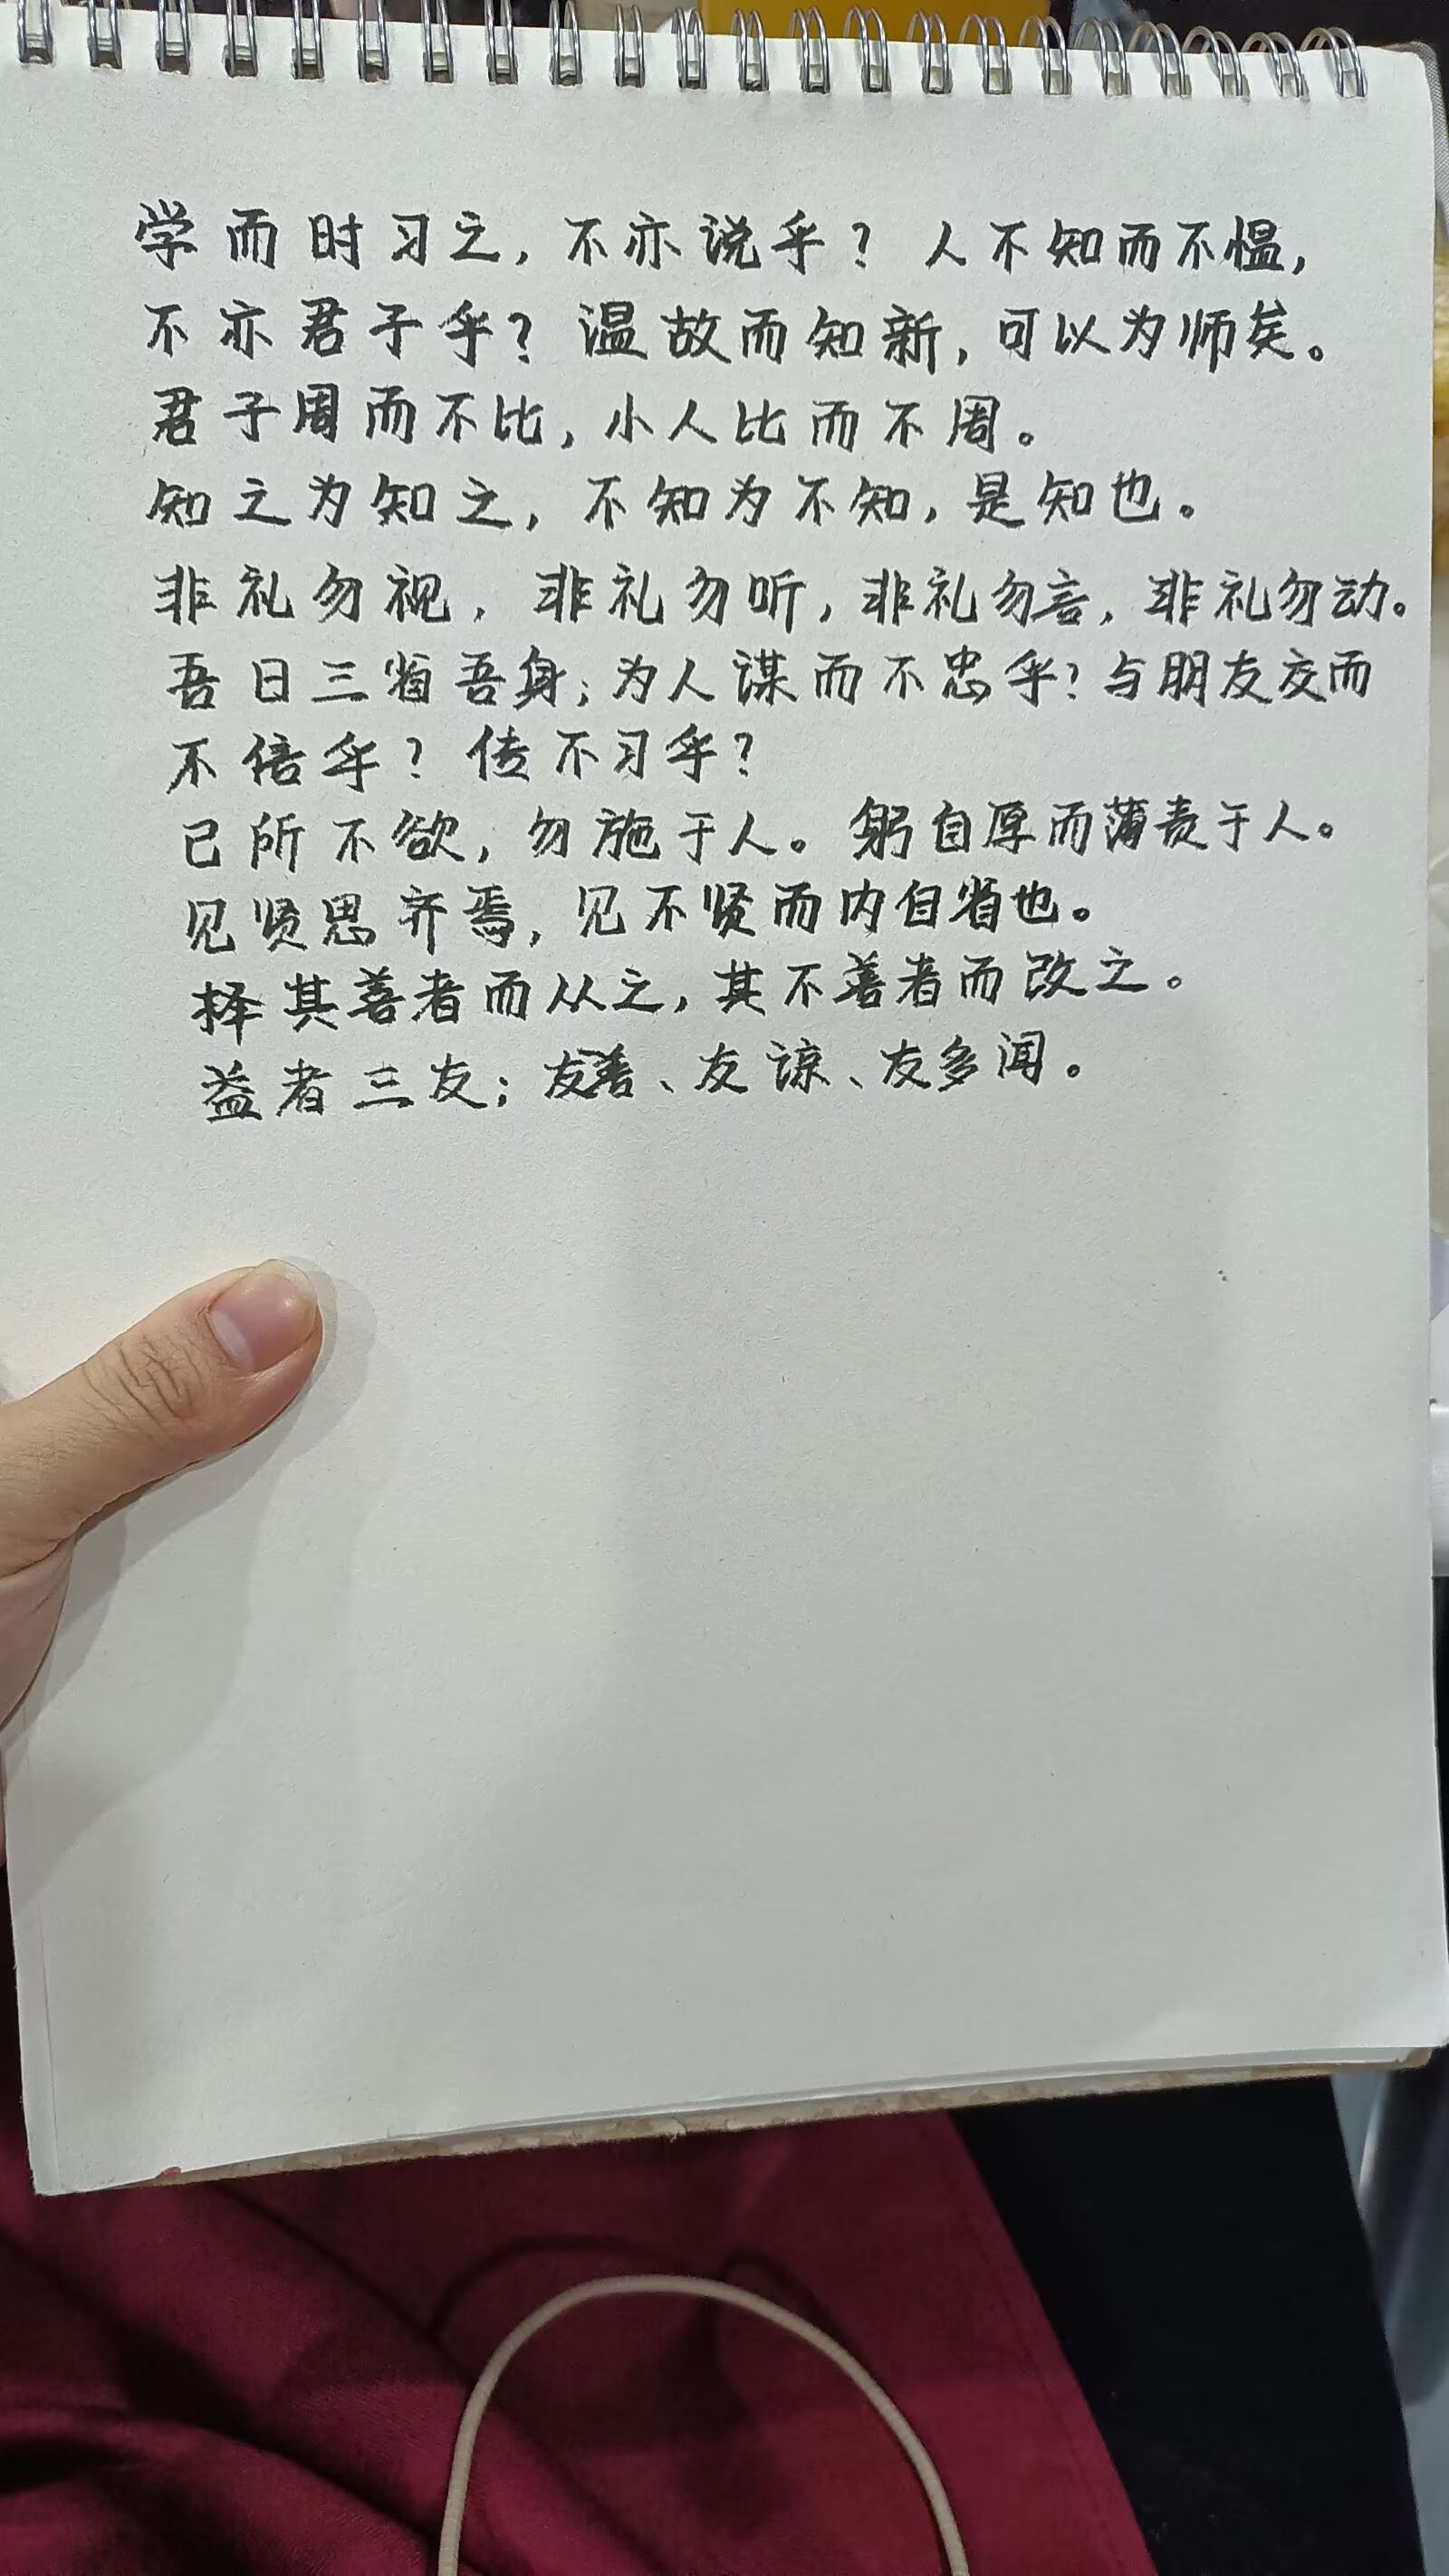 学而时习之，不亦说乎？人不知而不愠，
不亦君子乎？温故而知新，可以为师矣。
君子周而不比，小人比而不周。
知之为知之，不知为不知，是知也。
非礼勿视，非礼勿听，非礼勿言，非礼勿动。
吾日三省吾身；为人谋而不忠乎？与朋友交而
不倍乎？传不习乎？
已所不欲，勿施于人。躬自厚而薄责于人。
见贤思齐焉，见不贤而内自省也。
择其善者而从之，其不善者而改之。
益者三友；友善、友谅、友多闻。